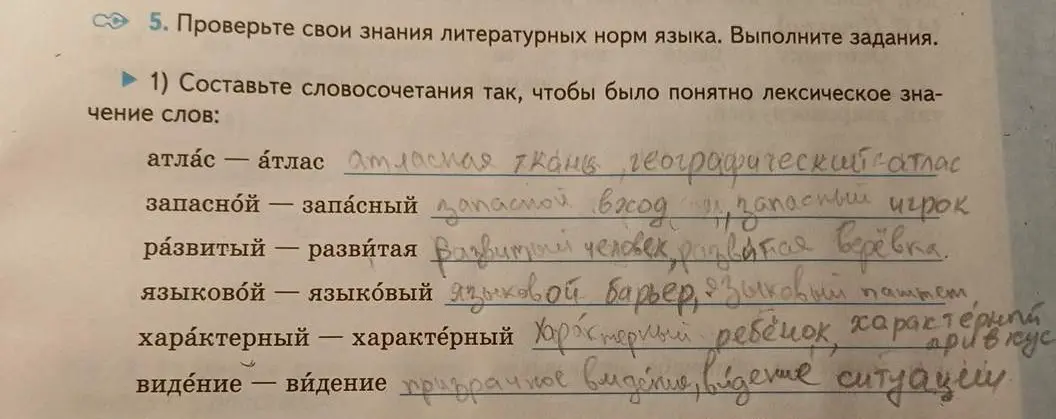 5. Проверьте свои знания литературных норм языка. Выполните задания.
1) Составьте словосочетания так, чтобы было понятно лексическое зна-
чение слов:
атла́с — а́тлас атласная ткань, географический атлас
запасно́й — запа́сный запасной вход, запасный игрок
ра́звитый — разви́тая развитый человек, разви́тая верёвка.
языково́й — языко́вый языковой барьер, языковый паштет,
хара́ктерный — характе́рный Хара́ктерный ребёнок, характе́рный
привкус
виде́ние — ви́дение призрачное виде́ние, ви́дение ситуации